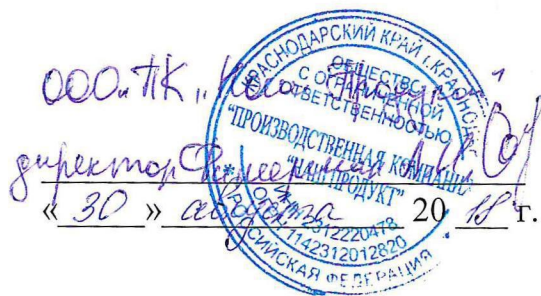 ООО „ПК „Наш Продукт"
директор
« 30 » августа 20 18 г.
КРАСНОДАРСКИЙ КРАЙ г. КРАСНОДАР
ОБЩЕСТВО
С ОГРАНИЧЕННОЙ
ОТВЕТСТВЕННОСТЬЮ
"ПРОИЗВОДСТВЕННАЯ КОМПАНИЯ
"НАШ ПРОДУКТ"
ИНН 2312220478
ОГРН 1142312012820
РОССИЙСКАЯ ФЕДЕРАЦИЯ